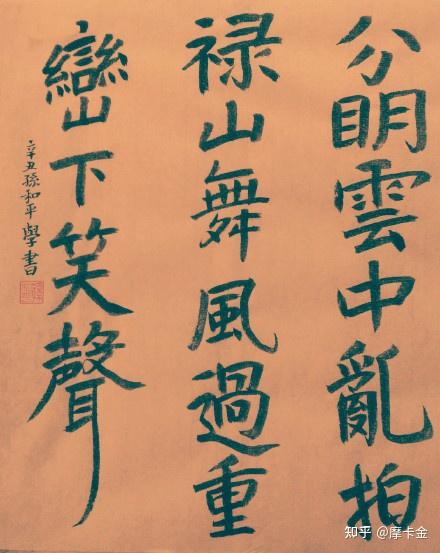 分明雲中亂拍
禄山舞風過重
巒下笑聲
辛丑孫和平學書
知乎 @摩卡金